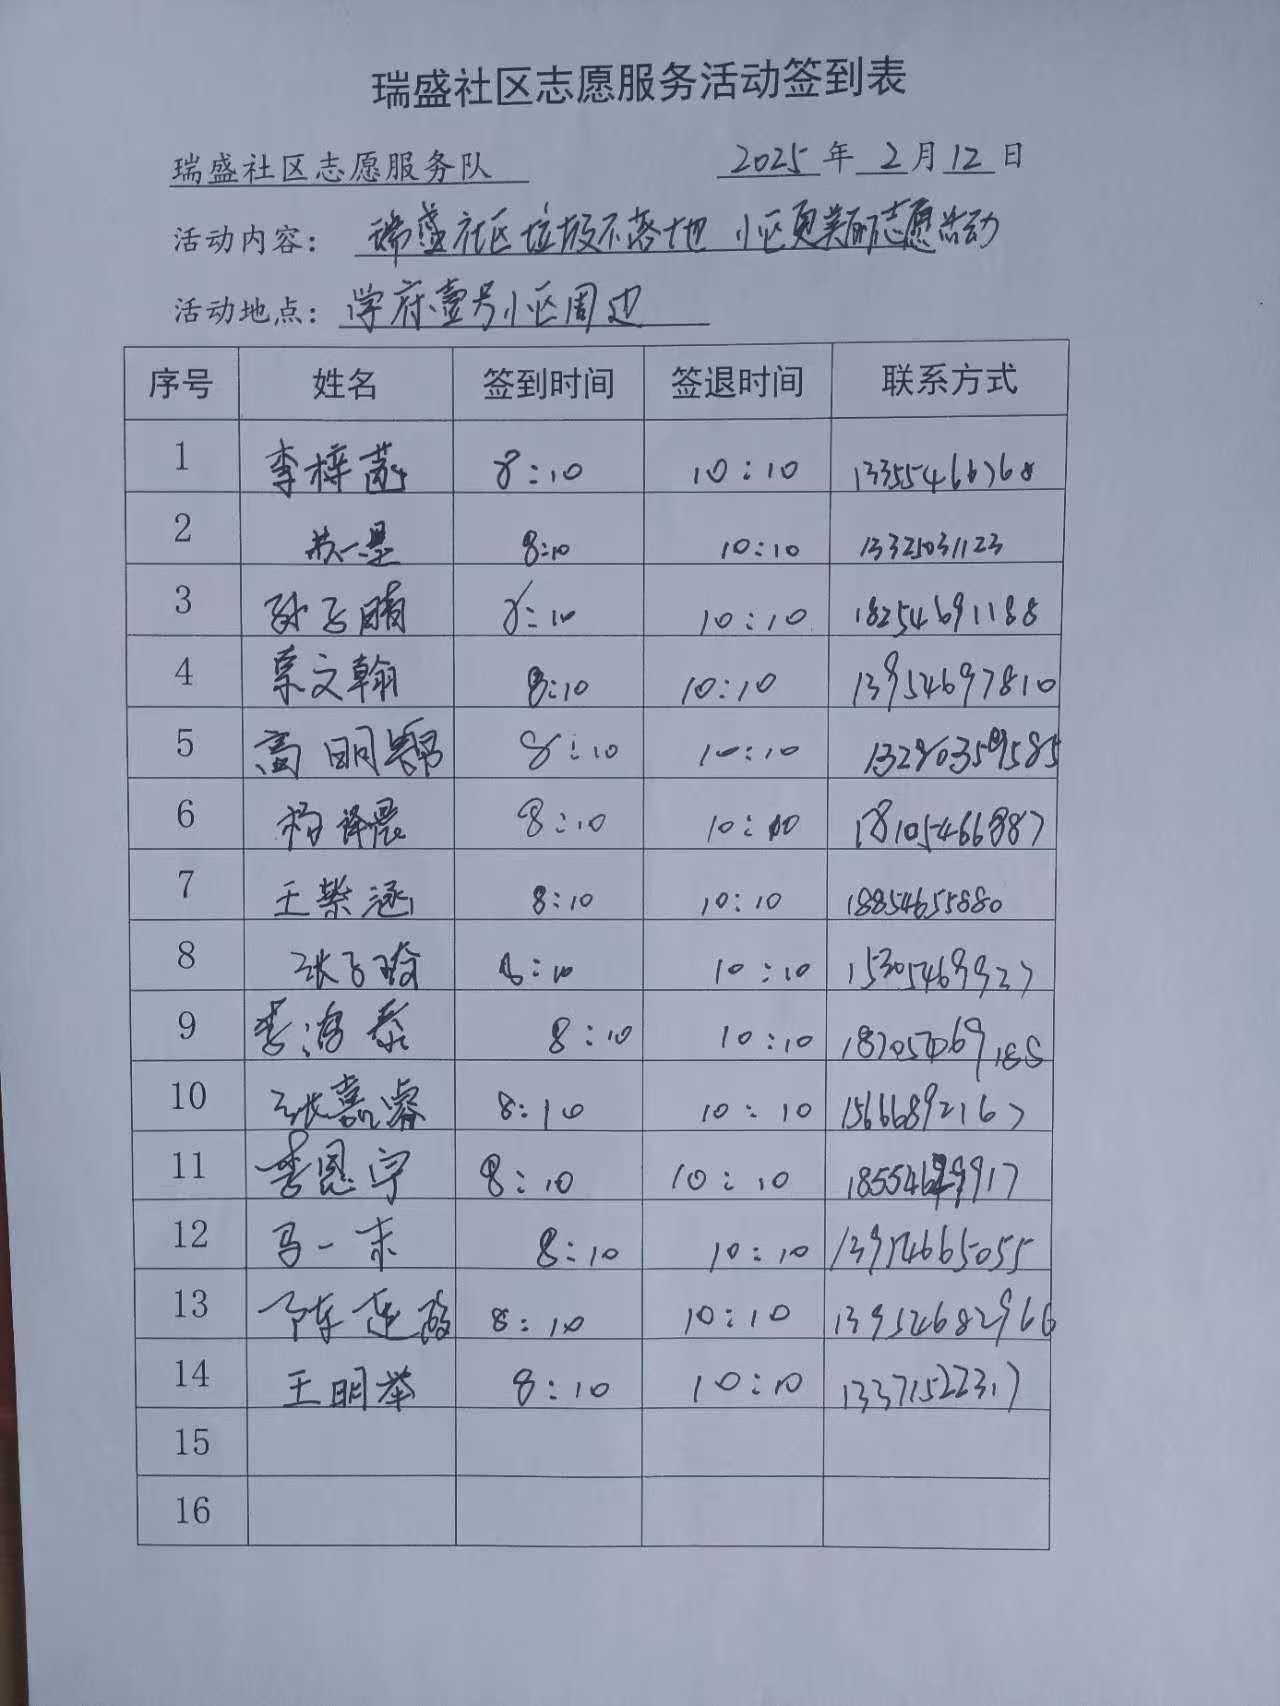 瑞盛社区志愿服务活动签到表
瑞盛社区志愿服务队 2025年2月12日
活动内容：瑞盛社区垃圾不落地 小区更美丽志愿活动
活动地点：学府壹号小区周边
序号 姓名 签到时间 签退时间 联系方式
1 李梓菡 8:10 10:10 13355466768
2 8:10 10:10 13325031123
3 8:10 10:10 18254691188
4 栗文翰 8:10 10:10 13954697810
5 高明 8:10 10:10
6 杨译晨 8:10 10:10 18105466887
7 王紫涵 8:10 10:10 18854655880
8 张子琀 8:10 10:10 15305469927
9 李海泰 8:10 10:10
10 张嘉睿 8:10 10:10 15666892167
11 李恩宇 8:10 10:10
12 马一末 8:10 10:10 13954665055
13 陈 8:10 10:10 13954682966
14 王明举 8:10 10:10 13371522317
15
16